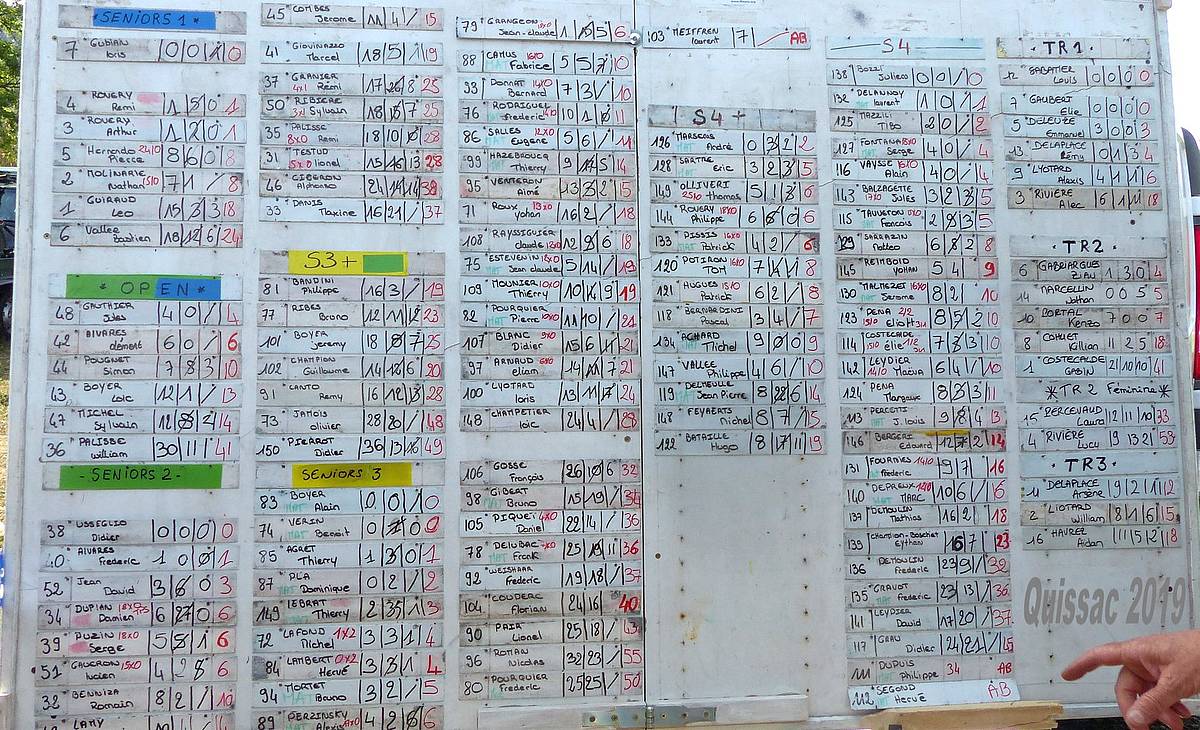 SENIORS 1
7 GUBIAN Loris 0 0 0
4 ROVERY Remi 1 5 0 1
3 ROVERY Arthur 1 2 0 1
5 Hernando Pierre 8 6 0 8
2 MOLINARIE Nathan 7 1 / 8
1 GUIRAUD Leo 15 3 3 18
6 Vallee Bastien 18 12 6 24
* OPEN *
48 GAUTHIER Jules 4 0 / 4
42 ALVARES clément 6 0 / 6
44 POUGNET Simon 7 8 3 10
43 BOYER Loic 12 1 / 13
47 MICHEL Sylvain
36 PALISSE William 30 11 / 41
- SENIORS 2 -
38 USSEGLIO Didier 0 0 0 0
40 ALVARES Frederic 1 0 0 1
52 Jean David 3 6 0 3
34 DUPIAN Damien 6 27 0 6
39 PUZIN Serge 5 8 1 6
51 GAUCRON lucien 4 2 8 6
32 BENNIZA Romain 8 2 / 10
LAMY
45 COMBES Jerome 11 4 / 15
41 GIOVINAZZO Marcel
37 GRANIER Rémi 17 26 8 25
50 RIBIERE Sylvain
35 PALISSE Remi
31 TESTUD lionel 15 16 13 28
46 GIBERGN Alphonse
33 DANIS Maxime 16 21 / 37
S3+
81 BANDINI Philippe 16 3 / 19
77 RIBES Bruno 12 11 12 23
101 BOYER Jeremy
102 CHAMPION Guillaume 14 18 6 20
91 CANTO Remy 16 12 13 28
73 JAMOIS olivier 28 20 / 48
150 PIERROT Didier 36 13 16 49
SENIORS 3
83 BOYER Alain 0 0 / 0
74 VERIN Benoit
85 AGRET Thierry 1 3 0 1
87 PLA Dominique 0 2 / 2
149 LEBRAT Thierry 2 35 1 3
72 LAFOND Michel 3 3 1 4
84 LAMBERT Hervé 3 3 1 4
94 MORTET Bruno 3 2 / 5
89 PERZINSKY Alexis
79 GRANGEON Jean-claude
88 CAMUS Fabrice 5 5 7 10
93 DONNAT Bernard 7 3 / 10
76 RODRIGUEZ Frederic
86 SALLES Eugene 5 6 / 11
99 HAZEBROUCQ Thierry
95 VENTERON Aimé 13 3 2 15
71 ROUX Yohan 16 2 / 18
108 RAYSSIGUIER claude 12 9 6 18
75 ESTEVENIN Jean claude 5 14 / 19
109 MOUNIER Thierry
82 POURQUIER Pierre 11 10 / 21
107 BLANC Didier
97 ARNAUD eliam
100 LYOTARD loris
148 CHAMPETIER loic
106 GOSSE François
98 GIBERT Bruno
105 PIQUET Daniel 22 14 / 36
78 DELUBAC Frank 25 19 11 36
92 WEISHAAR Frederic 19 18 / 37
104 COUDERC Florian
90 PAIR Lionel 25 18 / 43
96 ROMAN Nicolas 32 23 / 55
80 POURQUIER Frederic 25 25 / 50
103 MEIFFREN laurent 7 / AB
S4+
126 MARSEIS André 0 3 2 2
128 SARTRE Eric 3 2 3 5
149 OLLIVERI Thomas 5 1 8 6
144 ROVERY Philippe 6 6 0 6
133 PISSIS Patrick 4 2 / 6
120 POTIRON TOM
121 HUGUES Patrick 6 2 / 8
118 BERNARDINI Pascal 3 4 / 7
134 ACHARD Michel 9 0 0 9
147 VALLEE Philippe 4 6 / 10
119 DELMEULLE Jean Pierre
148 FEYAERTS Michel 8 7 / 15
122 BATAILLE Hugo
S4
138 BOZZI Julieco 0 0 / 0
132 DELANNOY laurent 1 0 / 1
125 MAZZILI TIBO 2 0 / 2
127 FONTANA Serge 4 0 / 4
116 VAYSSE Alain 4 0 / 4
143 BALZAGETTE Jules 3 2 3 5
115 TAUVERON Francois
129 SARRAZIN Matteo 6 8 2 8
145 REIMBOLD YOHAN 5 4 9
130 MALMEZET Jerome 8 2 10
123 DENA Eliott
114 COSTECALDE élie
142 LEYDIER Maëva 6 4 / 10
124 PENA Margaux 8 3 3 11
113 PERCETTI J. louis
146 BERGERI Edouard
131 FOURNIES Frederic 9 7 16
140 DEPREUX MARC 10 6 / 16
137 DEMOULIN Mathias 16 2 18
139 Champion-Boschet Eythan 16 7 23
136 DEMOULIN Frederic 23 9 / 32
135 GRAVIOT Frederic 23 13 / 36
141 LEYDIER David 17 20 / 37
117 GRAU Didier
111 DUPUIS Philippe 34 AB
112 SEGOND Hervé AB
• TR1 •
12 SABATIER Louis 0 0 0 0
7 GAUBERT Elie 0 0 0 0
5 DELEUZE Emmanuel 3 0 0 3
13 DELAPLACE Rémy 0 1 3 4
9 LYOTARD Alexis 4 1 1 6
3 RIVIÈRE Alec 6 1 11 18
• TR2 •
6 GABRIARGUES Ziau 1 3 0 4
14 MARCELLIN Nathan 0 0 5 5
10 PORTAL Kenzo 7 0 0 7
8 CAHUET Killian 11 2 5 18
1 COSTECALDE GABIN 21 10 10 41
* TR2 Féminine *
15 PERCEVAUD Laura 12 11 10 33
4 RIVIÈRE Lucy 19 13 21 53
• TR3 •
11 DELAPLACE Arsène 9 2 1 12
2 LIOTARD William 8 1 6 15
16 HAVREZ Aidan
Quissac 2019